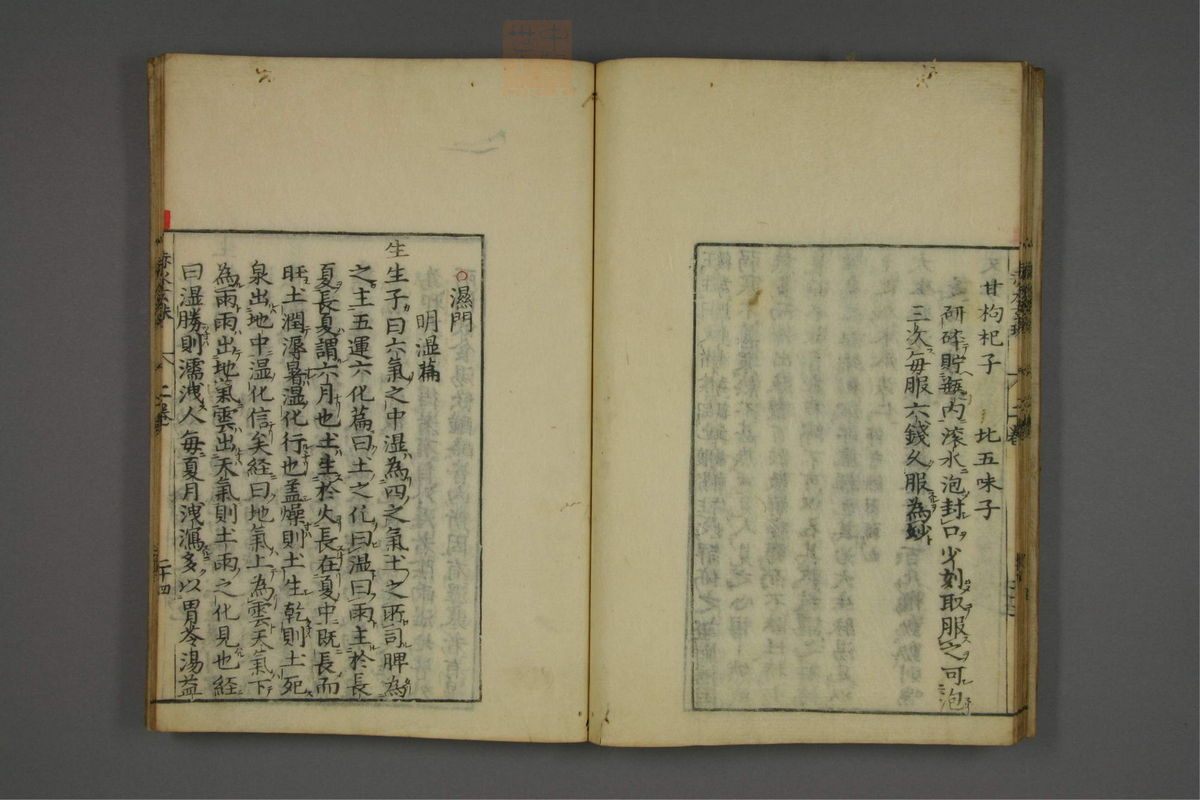 又甘枸杞子　北五味子
研碎貯瓶内滚水泡封口少刻取服之可泡
三次每服六錢久服為妙
濕門
明湿篇
生生子曰六氣之中湿為四之氣土之所司脾為
之主五運六化篇曰土之化曰湿曰雨主於長
夏長夏謂六月也土生於火長在夏中既長而
旺土潤溽暑湿化行也盖燥則土生乾則土死
泉出地中湿化信矣経曰地氣上為雲天氣下
為雨雨出地氣雲出天氣則土雨之化見也経
曰湿勝則濡洩人每夏月洩瀉多以胃苓湯益
二卷
二十四